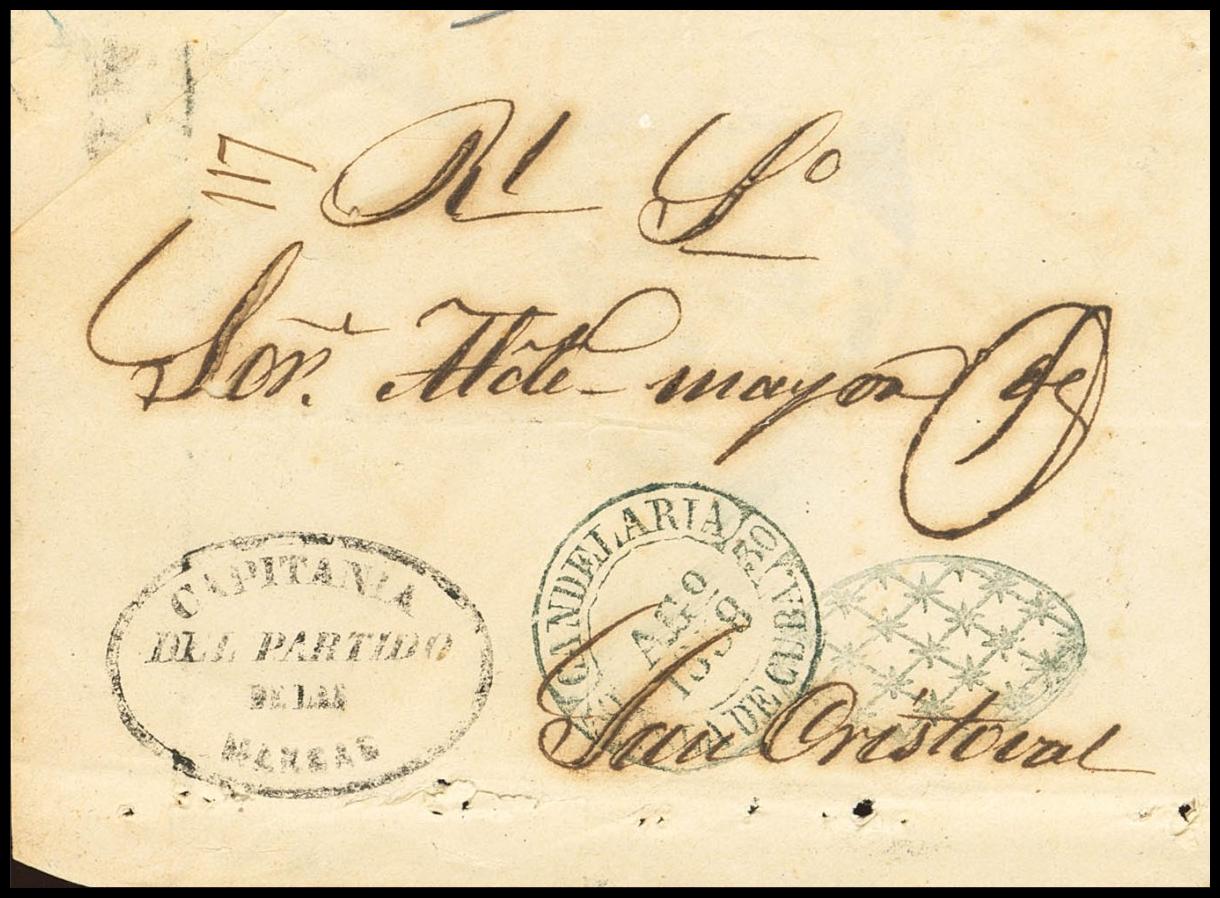 117 Rl So
Sor. Alcde mayor de
San Cristoval
CAPITANIA
DEL PARTIDO
DE LAS
MANGAS
CANDELARIA
Año
1859
DE CUBA